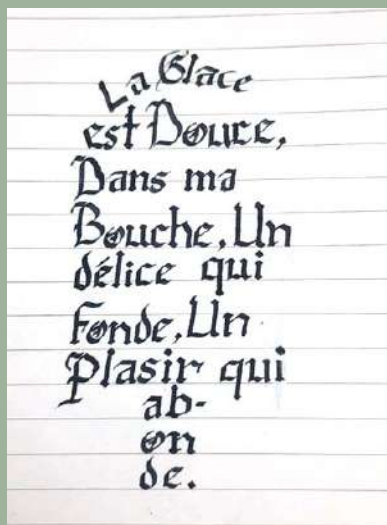 La Glace
est Douce,
Dans ma
Bouche, Un
délice qui
Fonde, Un
Plasir qui
ab-
on
de.